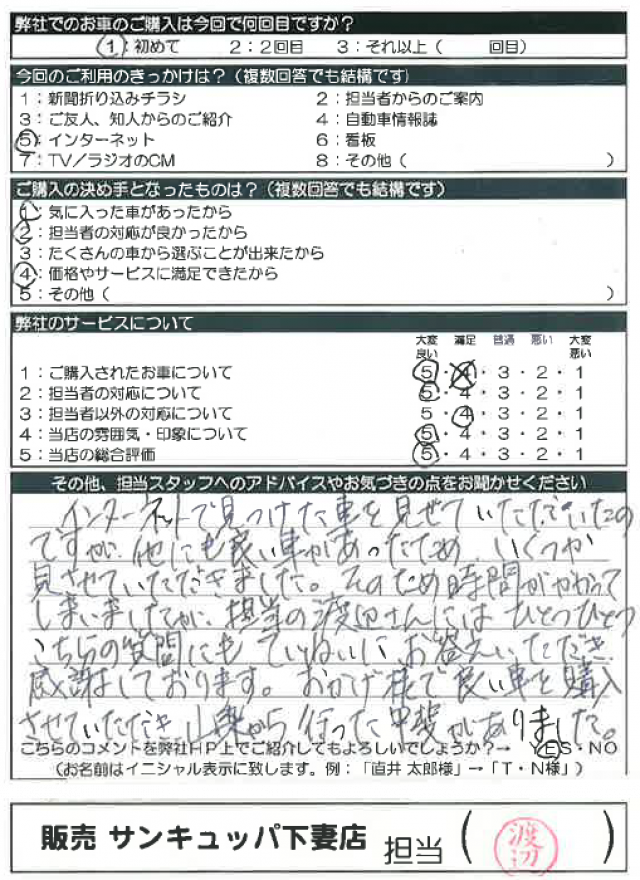 弊社でのお車のご購入は今回で何回目ですか？
1：初めて　2：2回目　3：それ以上（　　回目）
今回のご利用のきっかけは？（複数回答でも結構です）
1：新聞折り込みチラシ　2：担当者からのご案内
3：ご友人、知人からのご紹介　4：自動車情報誌
5：インターネット　6：看板
7：TV／ラジオのCM　8：その他（　　）
ご購入の決め手となったものは？（複数回答でも結構です）
1：気に入った車があったから
2：担当者の対応が良かったから
3：たくさんの車から選ぶことが出来たから
4：価格やサービスに満足できたから
5：その他（　　）
弊社のサービスについて
大変良い　満足　普通　悪い　大変悪い
1：ご購入されたお車について　5・4・3・2・1
2：担当者の対応について　5・4・3・2・1
3：担当者以外の対応について　5・4・3・2・1
4：当店の雰囲気・印象について　5・4・3・2・1
5：当店の総合評価　5・4・3・2・1
その他、担当スタッフへのアドバイスやお気づきの点をお聞かせください
インターネットで見つけた車を見せていただでいたの
ですが、他にも良い車があったため、いくつか
見させていただきました。そのため時間がかかって
しまいましたが、担当の渡辺さんにはひとつひとつ
こちらの質問にもていねいにお答えいただき
感謝しております。おかげ様で良い車を購入
させていただき山梨から行った甲斐がありました。
こちらのコメントを弊社HP上でご紹介してもよろしいでしょうか？→　YES・NO
（お名前はイニシャル表示に致します。例：「直井 太郎様」→「T・N様」）
販売 サンキュッパ下妻店　担当（渡辺）